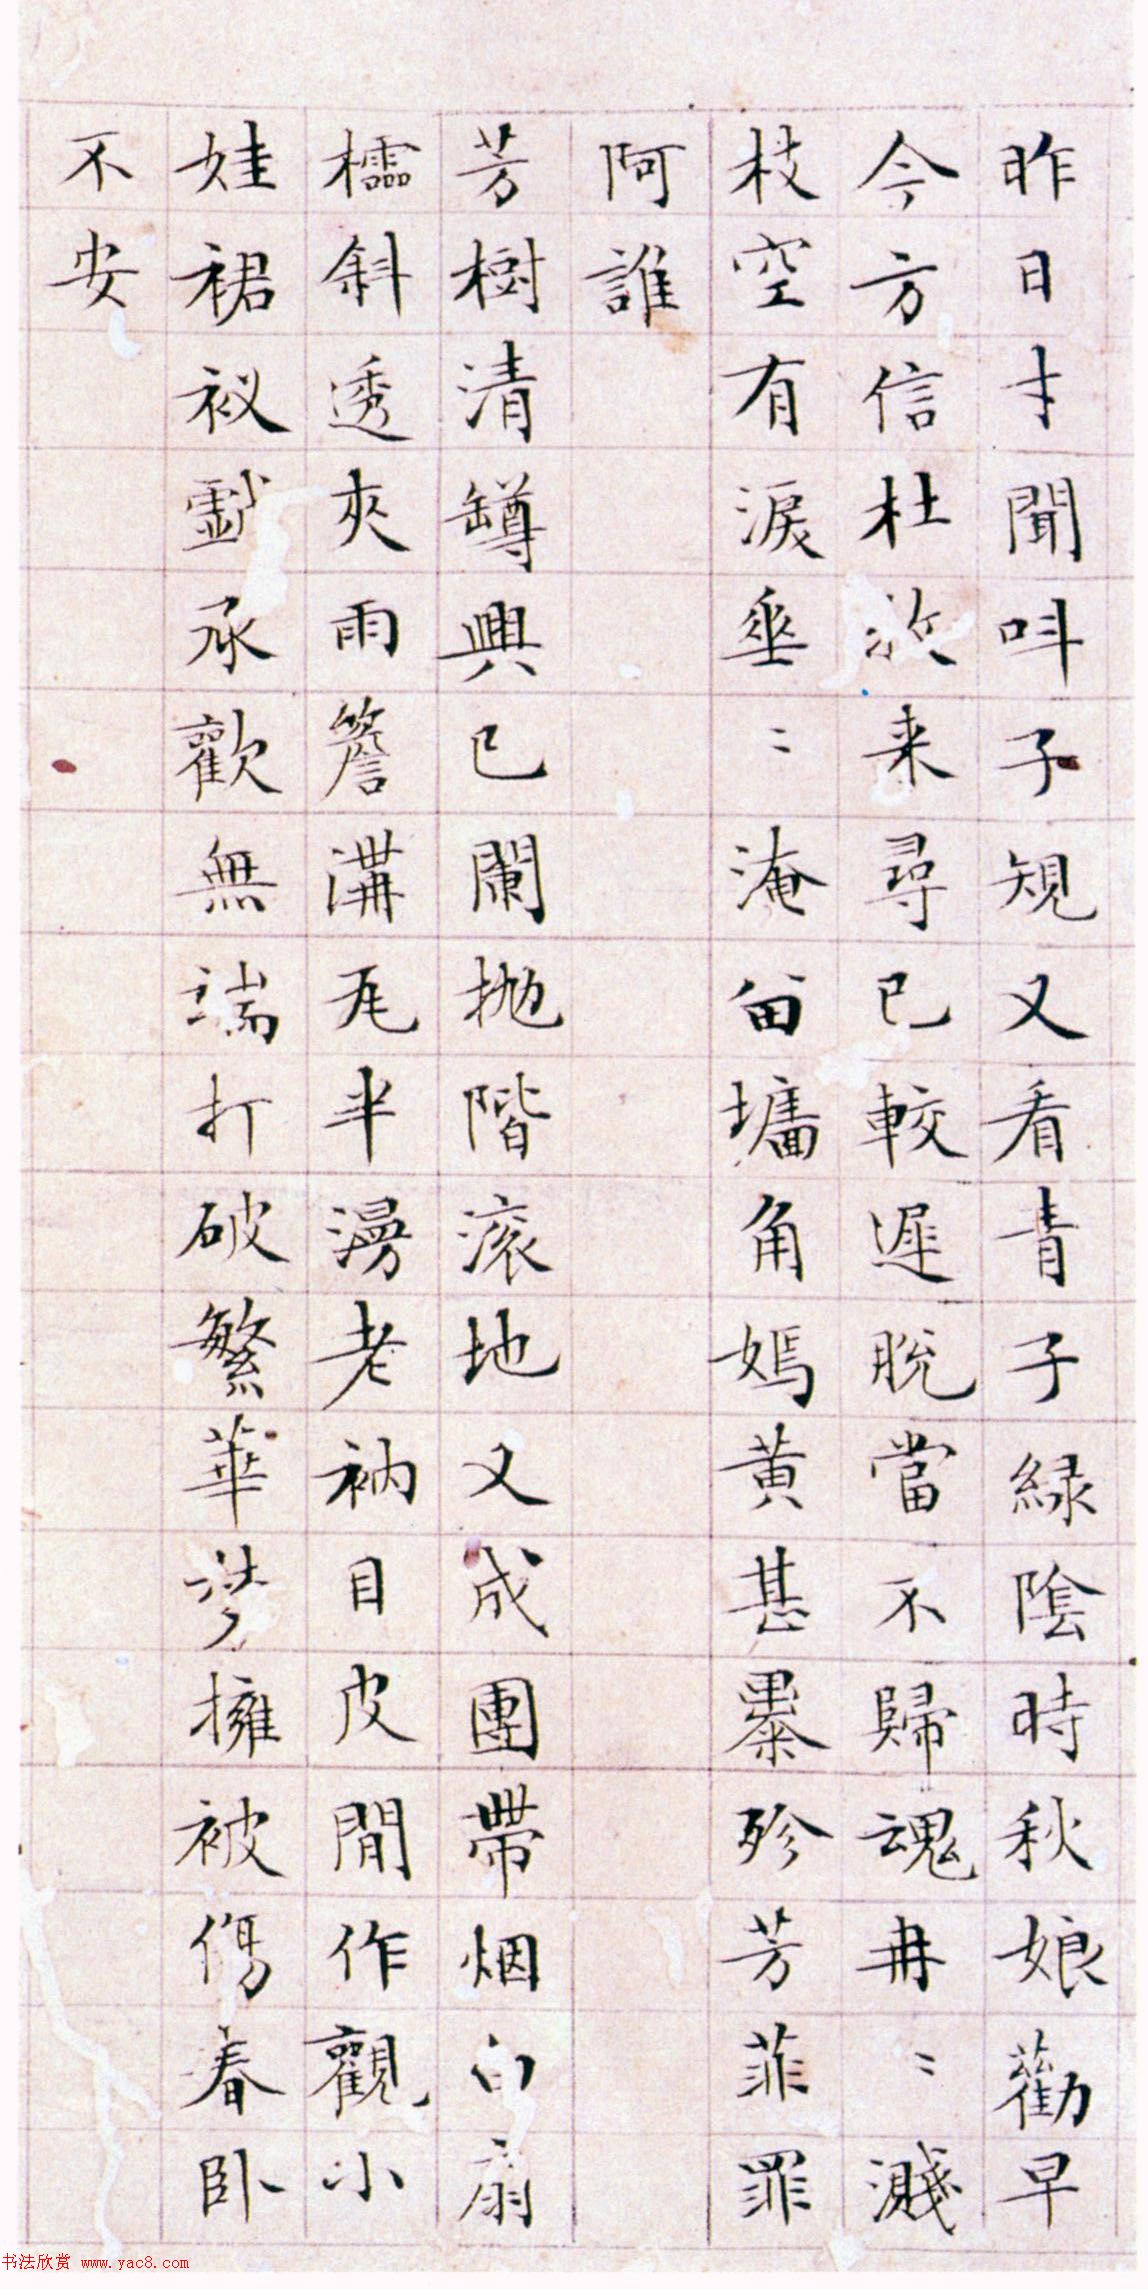 昨日才聞叫子規又看青子緑陰時秋娘勸早
今方信杜牧来尋已較遲脫當不歸魂冉〻濺
枝空有淚垂〻淹留墻角嫣黃甚暴殄芳菲罪
阿誰
芳樹清罇興已闌抛階滚地又成團帶烟白扇
櫺斜透夾雨簷溝瓦半漫老衲目皮閒作觀小
娃裙衩戲承歡無端打破繁華夢擁被傷春卧
不安
书法欣赏 www.yac8.com